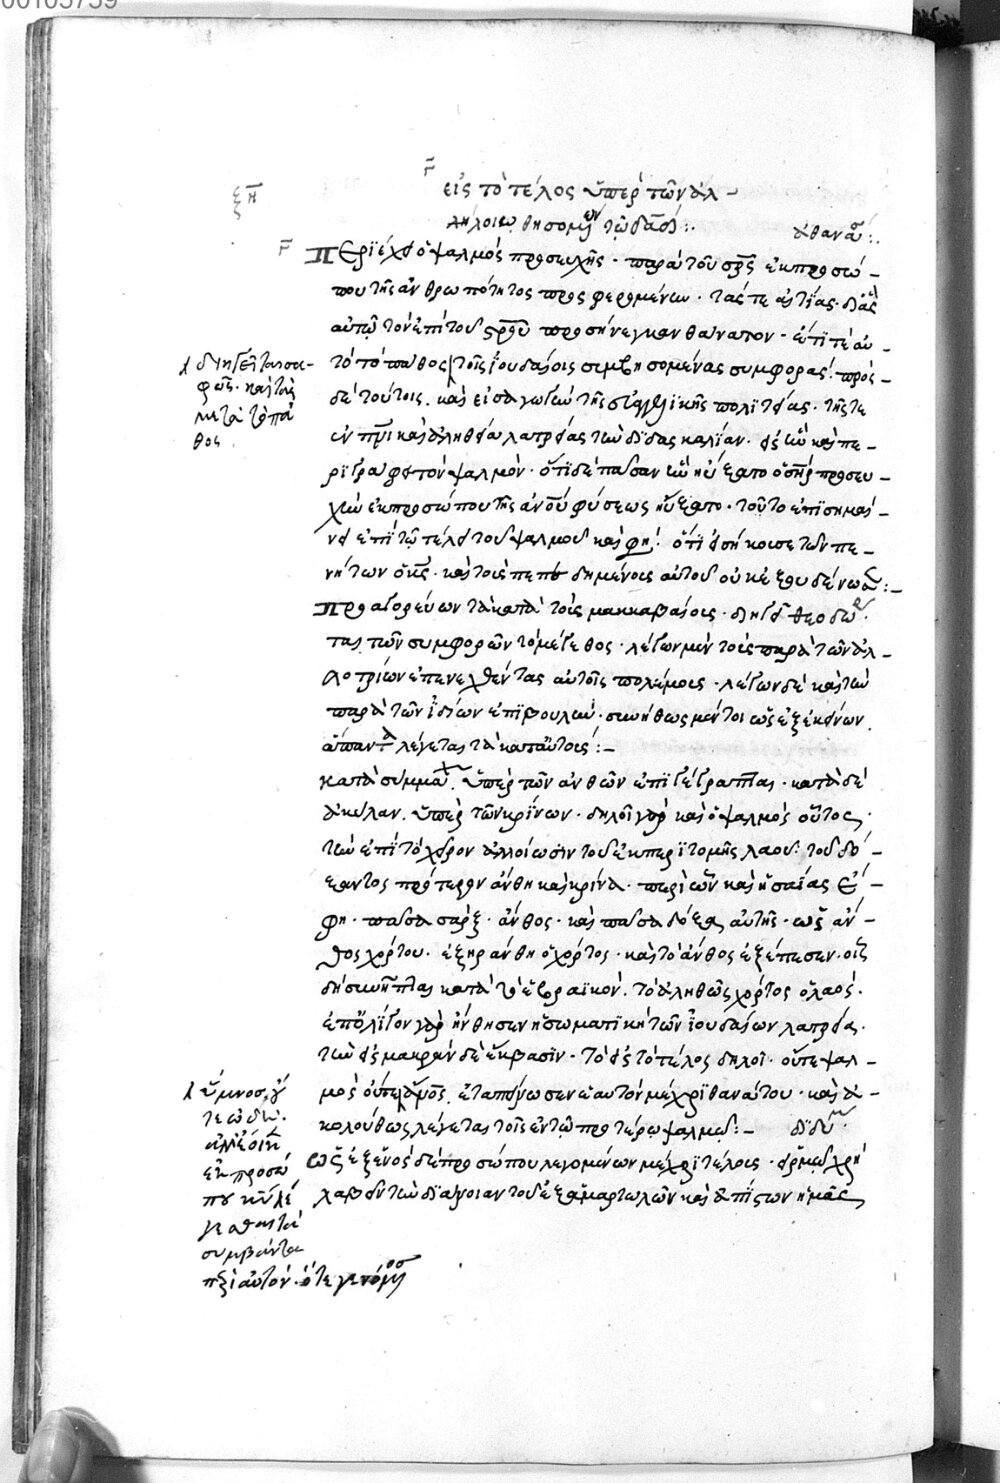 00105759
ξη
εἰς τὸ τέλος ὑπὲρ τῶν ἀλ-
λοιωθησομένων τῷ δαδ :
ἀθανασ :
Περιέχει ὁ ψαλμὸς προσευχῆς · παρὰ τοῦ σρς ἐκ προσώ-
που τῆς ἀνθρωπότητος προσφερομένων · τάς τε αἰτίας · δι' ἃς
αὐτῷ τὸν ἐπὶ τοῦ σροῦ προσήνεγκαν θάνατον · ἔτι τὲ αὐ-
τὸ τὸ πάθος τοῖς ἰουδαίοις συμβησομένας συμφοράς · πρὸς
δὲ τούτοις · καὶ εἰσαγωγὴν τῆς εὐαγγελικῆς πολιτείας · τῆς τε
ἐν πνι καὶ ἀληθεία λατρείας τὴν διδασκαλίαν · εἰς ὃν καὶ πε-
ριγράφει τὸν ψαλμόν · ὅτι δὲ πᾶσαν ἣν ηὔξατο ὁ σηρ προσευ-
χὴν ἐκ προσώπου τῆς ἀνου φύσεως ηὔξατο · τοῦτο ἐπισημαί-
νει ἐπὶ τῷ τέλει τοῦ ψαλμοῦ καὶ φη · ὅτι εἰσήκουσε τῶν πε-
νήτων ὁ κς · καὶ τοὺς πεπεδημένους αὐτοῦ οὐκ ἐξουδένωσεν :-
Προαγορεύων τὰ κατὰ τοὺς μακκαβαίους · διηγεῖ θεοδώ
τας τῶν συμφορῶν τὸ μέγεθος · λέγων μὲν τοὺς παρὰ τῶν ἀλ-
λοτρίων ἐπενεχθέντας αὐτοῖς πολέμους · λέγων δὲ καὶ τὴν
παρὰ τῶν ἰδίων ἐπιβουλήν · συνήθως μέντοι ὡς ἐξ ἐκείνων
ἅπαντα λέγεται τὰ κατ' αὐτούς :-
κατὰ σύμμα · ὑπὲρ τῶν ἀνθῶν ἐπιγέγραπται · κατὰ δὲ
ἀκύλαν · ὑπὲρ τῶν κρίνων · δηλοῖ γὰρ καὶ ὁ ψαλμὸς οὗτος ·
τὴν ἐπὶ τὸ χεῖρον ἀλλοίωσιν τοῦ ἐκ περιτομῆς λαοῦ · τοῦ δό-
ξαντος πρότερον ἄνθη καὶ κρίνα · περὶ ὧν καὶ ἡσαΐας ἔ-
φη · πᾶσα σὰρξ · ἄνθος · καὶ πᾶσα δόξα αὐτῆς · ὡς ἄν-
θος χόρτου · ἐξηράνθη ὁ χόρτος · καὶ τὸ ἄνθος ἐξέπεσεν · οἷς
δὴ συνῆπται κατὰ τὸ ἑβραϊκόν · τὸ ἀληθῶς χόρτος ὁ λαός ·
ἐπ' ὀλίγον γὰρ ἤνθησεν ἡ σωματικὴ τῶν ἰουδαίων λατρεία ·
τὴν εἰς μακρὰν δὲ ἔκβασιν · τὸ εἰς τὸ τέλος δηλοῖ · οὔτε ψαλ-
μὸς οὔτε ὕμνος · ἐταπείνωσεν ἑαυτὸν μέχρι θανάτου · καὶ ἀ-
κολούθως λέγεται τοῖς ἐν τῷ προτέρῳ ψαλμῷ :- διδύ
ὡς ἐξ ἑνὸς δὲ προσώπου λεγομένων μέχρι τέλους · χρὴ
λαβεῖν τὴν διάνοιαν τοῦ ἐξ ἁμαρτωλῶν καὶ ἀπίστων ἡμᾶς
διηγεῖται σα-
φῶς · καὶ τὰς
μετὰ τὸ πά
θος ·
ὕμνος, οὔ
τε ὠδὴ ·
ἐκ προσώ
που
συμβάντα
περὶ αὐτὸν · ὅτε γενόμενος